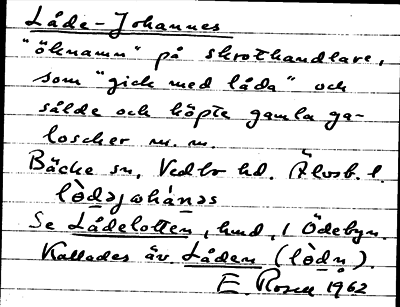 Låde-Johannes
"öknamn" på skrothandlare,
som "gick med låda" och
sålde och köpte gamla ga-
loscher m. m.
Bäcke sn, Vedbo hd. Älvsb. l.
lò̱dəjəhánəs
Se Lådelotten, hmd, i Ödebyn.
Kallades äv. Låden (lò̱dn̥).
E. Rosell 1962